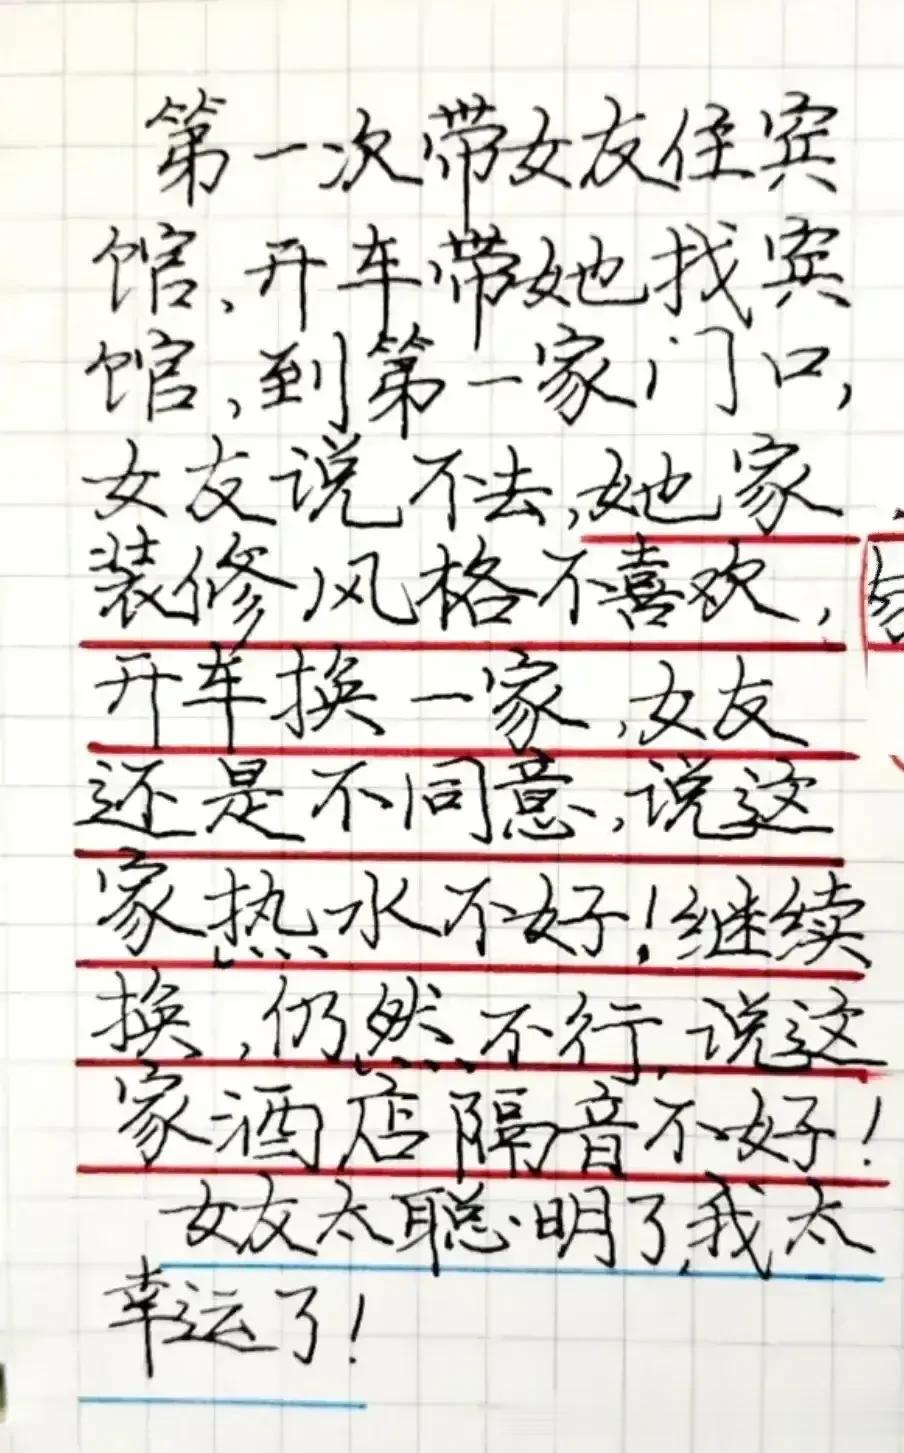 第一次带女友住宾
馆、开车带她找宾
馆,到第一家门口,
女友说不去,她家
装修风格不喜欢,
开车换一家,女友
还是不同意,说这
家热水不好!继续
换,仍然不行,说这
家酒店隔音不好!
女友太聪明了,我太
幸运了!